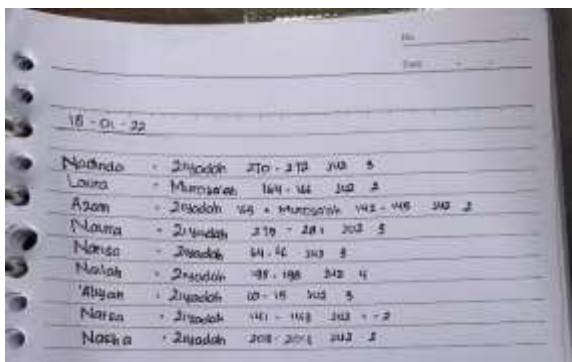 No.
Date
18-01-22
Nadinda : Ziyadah 270 - 272 juz 3
Laura : Muroja'ah 164 - 166 juz 2
Azam : Ziyadah 165 + Muroja'ah 142 - 145 juz 2
Naura : Ziyadah 279 - 281 juz 3
Narisa : Ziyadah 64 - 66 juz 3
Nailah : Ziyadah juz 4
Abyan : Ziyadah juz 3
Narsa : Ziyadah juz
Nasha : Ziyadah juz 2